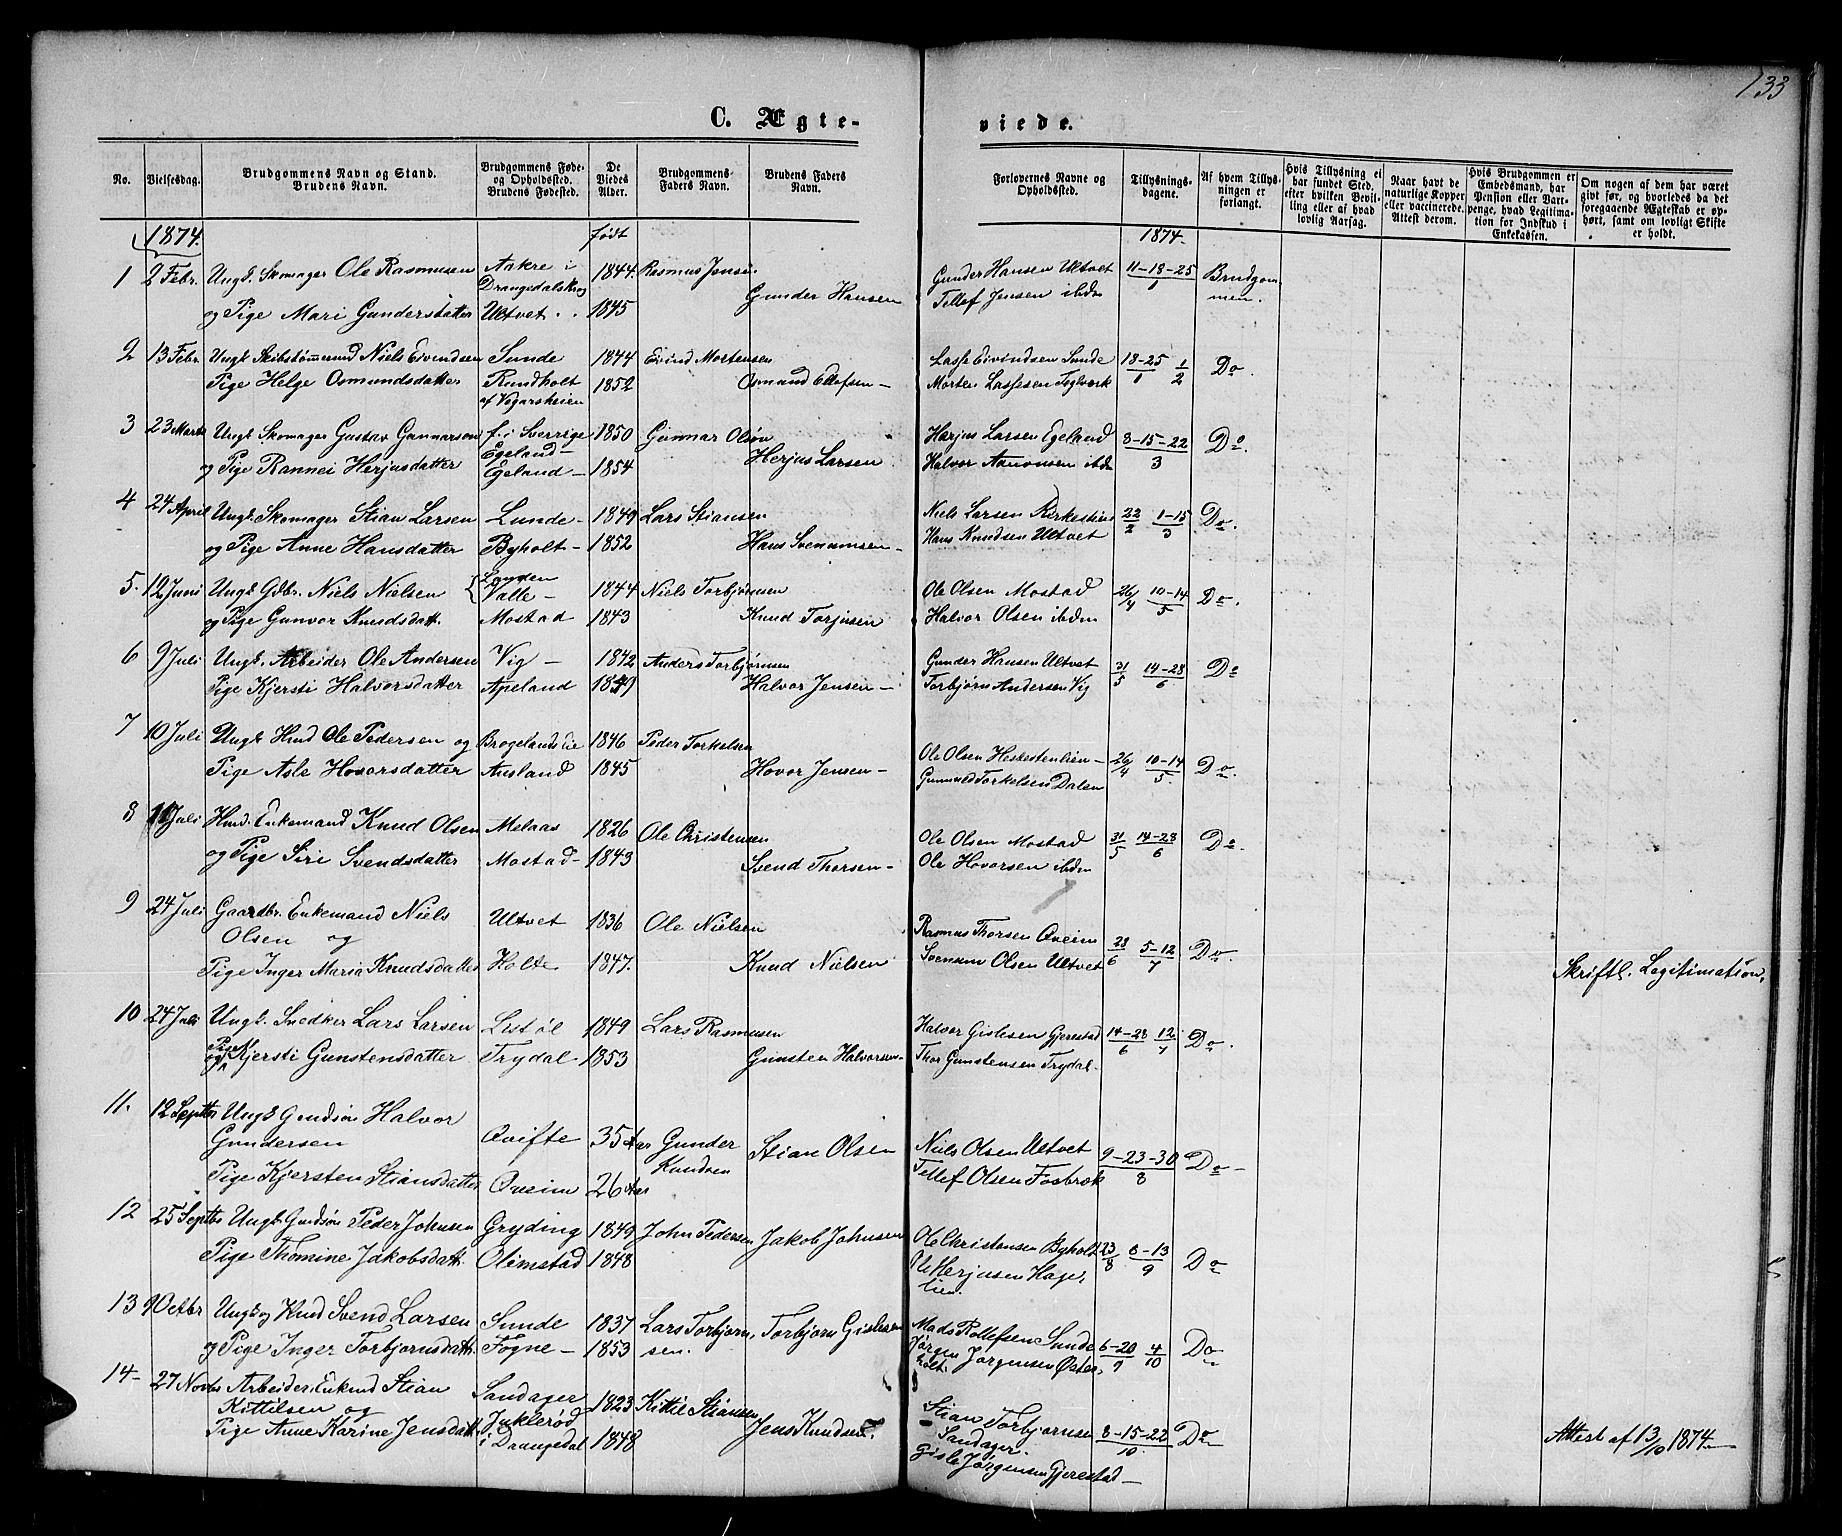 133
C. Ægte-
viede.
No.
Vielsesdag.
Brudgommens Navn og Stand.
Brudens Navn.
Brudgommens Føde-
og Opholdssted.
Brudens Fødested.
De
Viedes
Alder.
Brudgommens
Faders Navn.
Brudens Faders
Navn.
Forlovernes Navne og
Opholdssted.
Tillysnings-
dagene.
Af hvem Tillys-
ningen er
forlangt.
Hvis Tillysning ei
har fundet Sted,
efter hvilken Bevil-
ling eller af hvad
lovlig Aarsag.
Naar havt de
naturlige Kopper
eller vaccinerede.
Attest derom.
Hvis Brudgommen er
Embedsmand, har
Pension eller Vart-
penge, hvad Legitima-
tion for Indskud i
Enkekassen.
Om nogen af dem har været
gift før, og hvorledes da det
foregaaende Ægteskab er op-
hørt, samt om lovligt Skifte
er holdt.
1874.
født
1874.
1 2 Febr. Ungk. Skomager Ole Rasmusen Aakre i 1844. Rasmus Jensen Gunder Hansen Ultvet 11-18-25 Brudgom-
Drangedalskog Gunder Hansen Tellef Jensen ibdn 1 men.
og Pige Mari Gundersdatter Ultvet 1845
2 13 Febr. Ungk. Skibstømmermand Niels Eivindsen Sunde 1844 Eivind Mortensen Lasse Eivindsen Sunde 18-25 1 Do
Pige Helge Osmundsdatter Rundholt 1852 Osmund Ellefsen - Morten Lassesen 1 2
af Vegarsheien
3 23 Marts Ungk. Skomager Gustav Gunnarson f. i Sverrige 1850 Gunnar Olsøn Harjus Larsen Egeland 8-15-22 Do.
Egeland - Herjus Larsen
og Pige Rannei Herjusdatter Egeland - 1854 Halvor Aanonsen ibdn 3
4 24 April Ungk. Skomager Stian Larsen Lunde - 1849 Lars Stiansen Niels Larsen 22 1-15 Do.
og Pige Anne Hansdatter Byholt - 1852 Hans Svenumsen - Hans Knudsen Ultvet 2 3
5. 12 Juni Ungk. Gdbr. Niels Nielsen Valle - 1844 Niels Torbjørnsen Ole Olsen Mostad 26/4 10-14 Do.
og Pige Gunvor Knudsdatt. Mostad 1843 Knud Torjusen Halvor Olsen ibdn 5
6 9 Juli Ungk. Arbeider Ole Andersen Vig - 1842 Anders Torbjørnsen Gunder Hansen Ultvet 31 14-28 Do
Pige Kjersti Halvorsdatter Apeland 1849 Halvor Jensen - Torbjørn Andersen Vig 5 6
7 10 Juli Ungk. Hmd Ole Pedersen og Brogelandslie 1846 Peder Torkelsen Ole Olsen Heskestenlien - 26/4 10-14 Do.
Pige Asle Hovorsdatter Ausland 1845 Hovor Jensen - Gunnuld Torkelsen Dalen 5
8 11 Juli Hmd. Enkemand Knud Olsen Melaas 1826 Ole Christensen Ole Olsen Mostad 31 14-28 Do
og Pige Siri Svendsdatter Mostad - 1843 Svend Thorsen - Ole Hovorsen ibdn 5 6
9 24 Juli Gaardbr. Enkemand Niels Ultvet 1836 Ole Nielsen Rasmus Thorsen Qveim 28 5-12 Do
Olsen og
Pige Inger Maria Knudsdatter Holte 1847. Knud Nielsen Svenum Olsen Ultvet 6 7 Skriftl. Legitimation.
10 24 Juli Ungk. Snedker Lars Larsen Listøl 1849 Lars Rasmusen Halvor Gislesen Gjerestad 14-28 12 Do.
og Pige Kjersti Gunstensdatter Trydal - 1853 Gunsten Halvorsen - Thor Gunstensen Trydal - 6 7
11. 12 Septbr Ungk. Gmdsøn Halvor
Gundersen Qvifte 35 Aar Gunder Stian Olsen Niels Olsen Ultvet 9-23-30 Do -
Knudsen
Pige Kjersten Stiansdatter Qveim 26 Aar Tellef Olsen Fosbrok 8
12 25 Septbr Ungk. Gmdsøn Peder Johnsen Gryding 1849 John Pedersen Jakob Johnsen Ole Christensen Byholt 23 6-13 Do
Pige Thomine Jakobsdatt. Olimstad 1848 Ole Herjusen Hage- 8 9
lien.
13 9 Octbr Ungk. og Hmd Svend Larsen Sunde 1837 Lars Torbjørn- Torbjørn Gislesen Mads Rollefsen Sunde 6-20 4 Do
og Pige Inger Torbjørnsdatt. Fogne - 1853 sen. Jørgen Jørgensen Øster- 9 10
holt.
14- 27 Novbr Arbeider, Enkmd Stian Sandager 1823 Kittil Stiansen Stian Torbjørnsen 8-15-22 Do
Kittilsen og Sandager. 10.
Pige Anne Karine Jensdatt. i Drangedal 1848 Jens Knudsen. Gisle Jørgensen Gjerestad - Attest af 13/10 1874